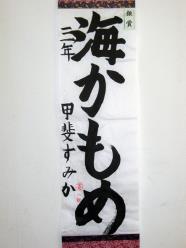 銀賞
海かもめ
三年 甲斐すみか